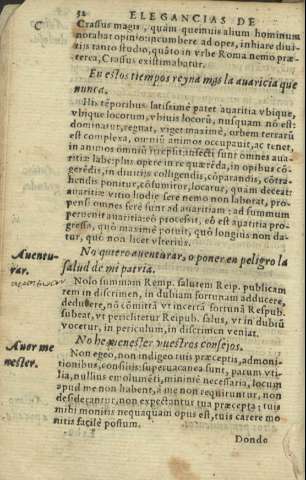 52 ELEGANCIAS DE
C
Crassus magis, quàm quemuis alium hominum
notabat opinio incumbere ad opes, inhiare diui-
tijs tanto studio, quãto in vrbe Roma nemo præ-
terea, Crassus existimabatur.
En estos tiempos reyna mas la auaricia que
nunca.
His tẽporibus latissimè patet auaritia vbique,
vbique locorum, vbiuis locorũ, nusquam nõ est:
dominatur, regnat, viget maximè, orbem terrarũ
est complexa, omniũ animos occupauit, ac tenet,
in animos omniũ
labe: plus opere in re quærẽda, in opibus cõ-
gerẽdis, in diuitijs colligendis, cõparandis, cõtra-
hendis ponitur, cõsumitur, locatur, quàm deceat:
auaritiæ vitio hodie ferè nemo non laborat, pro-
pensi omnes ferè sunt ad auaritiam: ad summum
peruenit auaritia: eò processit, eò est auaritia pro-
gressa, quò maximè potuit, quò longius non da-
tur, quò non licet vlterius.
Auentu-
rar.
No quiero auenturar, o poner en peligro la
salud de mi patria.
Nolo summam Remp. salutem Reip. publicam
rem in discrimen, in dubiam fortunam adducere,
deducere, nõ cõmittã vt incertã fortunã Respub.
subeat, vt periclitetur Reipub. salus, vt in dubiũ
vocetur, in periculum, in discrimen veniat.
Auer me
nester.
No he menester vuestros consejos.
Non egeo, non indigeo tuis præceptis, admoni-
tionibus, consilijs: superuacanea sunt, parum vti-
lia, nullius emolumẽti, minimè necessaria, locum
apud me non habent, à me non requiruntur, non
desiderantur, non expectantur tua præcepta: tuis
mihi monitis nequaquam opus est, tuis carere mo-
nitis facilè possum.
Donde